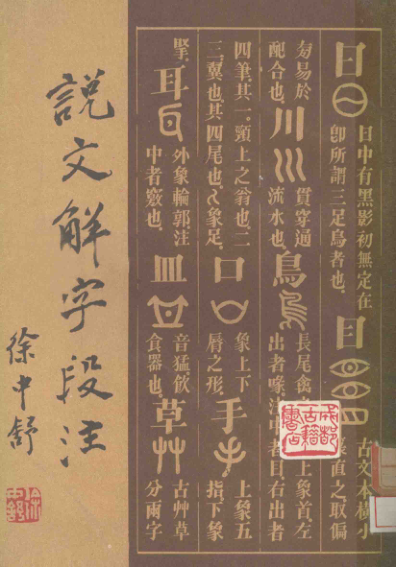 説文解字段注
徐中舒
徐中舒
日
日中有黑影初無定在
即所謂三足烏者也
目
古文本橫小
直之取偏
易於
配合也
川
貫穿通
流水也
鳥
長尾禽
上象首左
出者喙注中者目右出者
四筆其一頸上之翁也二
三翼也其四尾也
象足
口
象上下
脣之形
手
上象五
指下象
掔
耳
外象輪郭注
中者竅也
皿
音猛飲
食器也
草
古艸草
分兩字
成都古籍書店